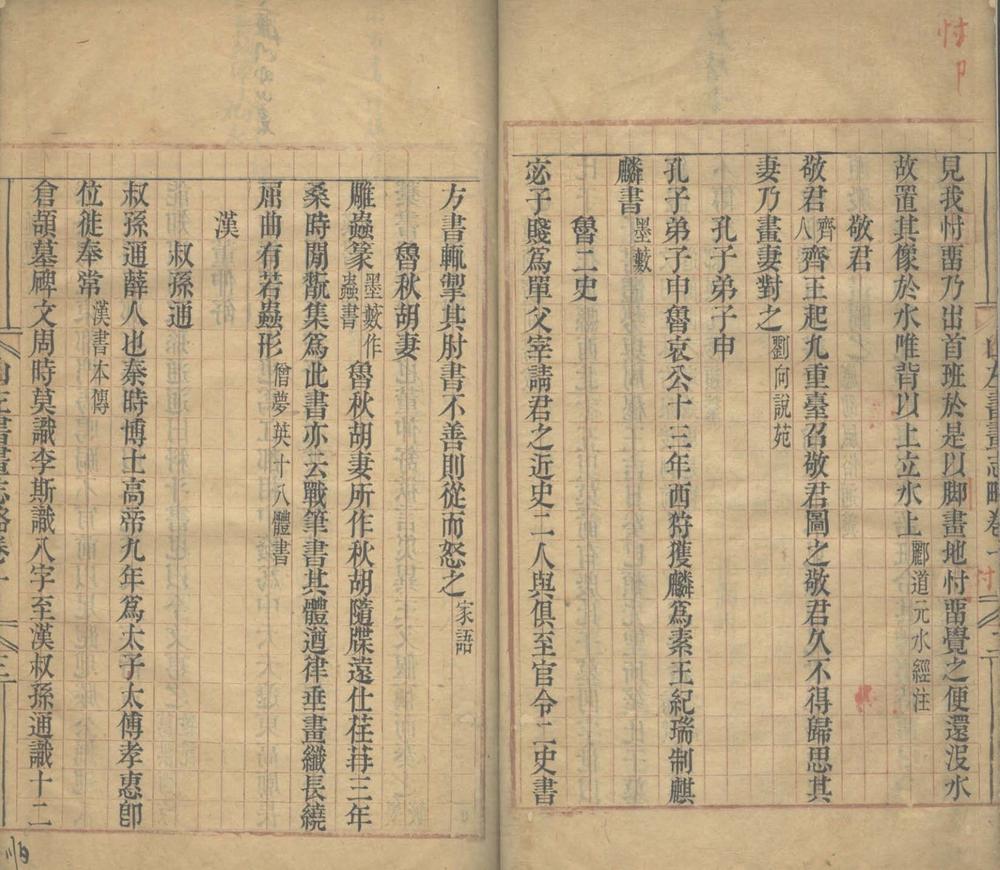 見我忖畱乃出首班於是以脚畫地忖畱覺之便還沒水
故置其像於水唯背以上立水上酈道元水經注
敬君
敬君齊人齊王起九重臺召敬君圖之敬君久不得歸思其
妻乃畫妻對之劉向說苑
孔子弟子申
孔子弟子申魯哀公十三年西狩獲麟爲素王紀瑞制麒
麟書墨藪
魯二史
宓子賤爲單父宰請君之近史二人與俱至官令二史書
方書輒掣其肘書不善則從而怒之家語
魯秋胡妻
雕蟲篆墨藪作蟲書魯秋胡妻所作秋胡隨牒遠仕荏苒三年
桑時閒翫集爲此書亦云戰筆書其體遒律垂畫纖長繞
屈曲有若蟲形僧夢英十八體書
漢
叔孫通
叔孫通薛人也秦時博士高帝九年爲太子太傅孝惠卽
位徙奉常漢書本傳
倉頡墓碑文周時莫識李斯識八字至漢叔孫通識十二